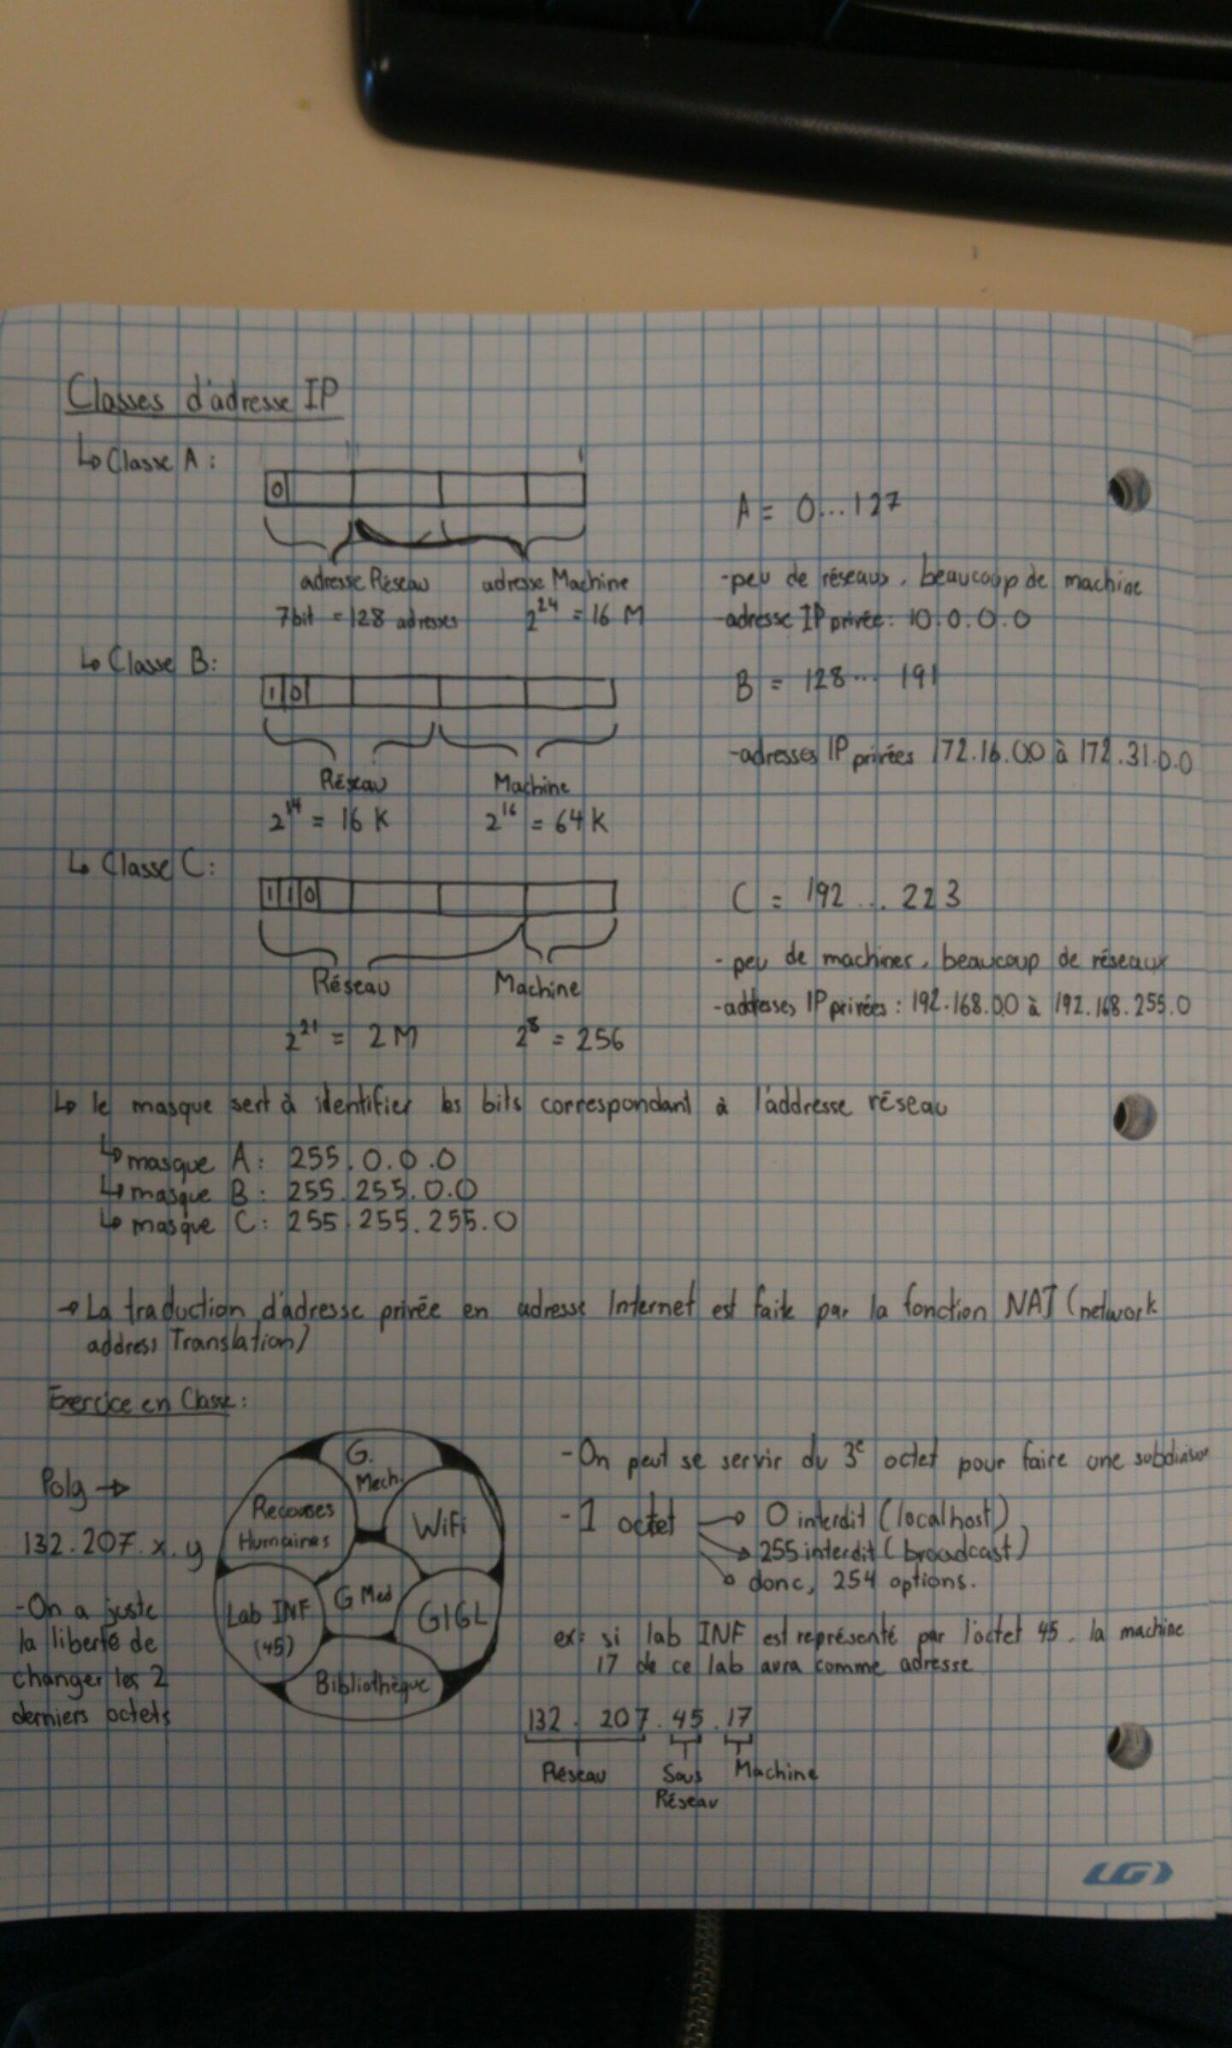 Classes d'adresse IP
↳ Classe A:
0
A = 0...127
adresse Réseau adresse Machine
7bit = 128 adresses 2^24 = 16 M
- peu de réseaux, beaucoup de machine
- adresse IP privée: 10.0.0.0
↳ Classe B:
1 0
B = 128... 191
Réseau Machine
2^14 = 16 K 2^16 = 64 K
- adresses IP privées 172.16.0.0 à 172.31.0.0
↳ Classe C:
1 1 0
C = 192 ... 223
Réseau Machine
2^21 = 2 M 2^8 = 256
- peu de machines, beaucoup de réseaux
- addresses IP privées: 192.168.0.0 à 192.168.255.0
↳ le masque sert à identifier les bits correspondant à l'addresse réseau
↳ masque A: 255.0.0.0
↳ masque B: 255.255.0.0
↳ masque C: 255.255.255.0
→ La traduction d'adresse privée en adresse Internet est faite par la fonction NAT (network
address Translation)
Exercice en Classe:
Poly →
132.207.x.y
- On a juste
la liberté de
changer les 2
derniers octets
G.
Mech.
Recouses
Humaines
WiFi
G Med
Lab INF
(45)
GIGL
Bibliothèque
- On peut se servir du 3e octet pour faire une subdivision
- 1 octet → 0 interdit (localhost)
→ 255 interdit (broadcast)
→ donc, 254 options.
ex: si lab INF est représenté par l'octet 45, la machine
17 de ce lab aura comme adresse
132.207.45.17
Réseau Sous Machine
Réseau
LG